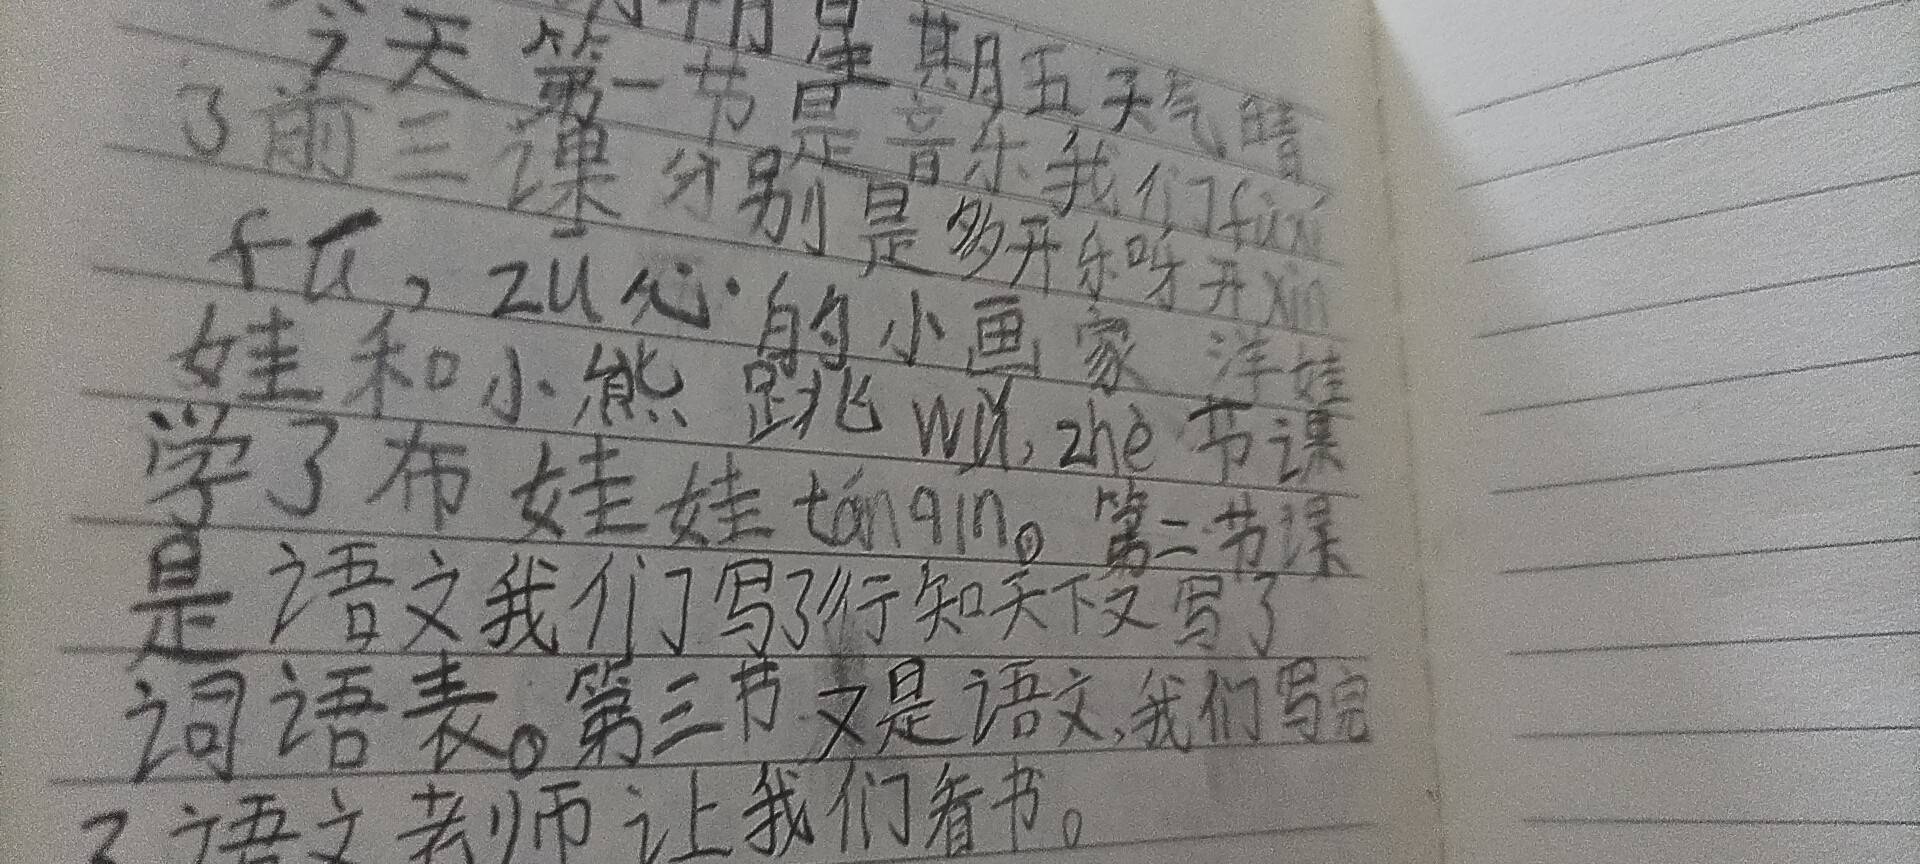 星期五天气晴
今天第一节是音乐我们fùxí
了前三课分别是多开乐呀开xin
的小画家 洋娃
娃和小熊跳wǔ,zhè节课
学了布娃娃tánqin。第二节课
是语文我们写了行知天下又写了
词语表。第三节又是语文,我们写完
了语文老师让我们看书。